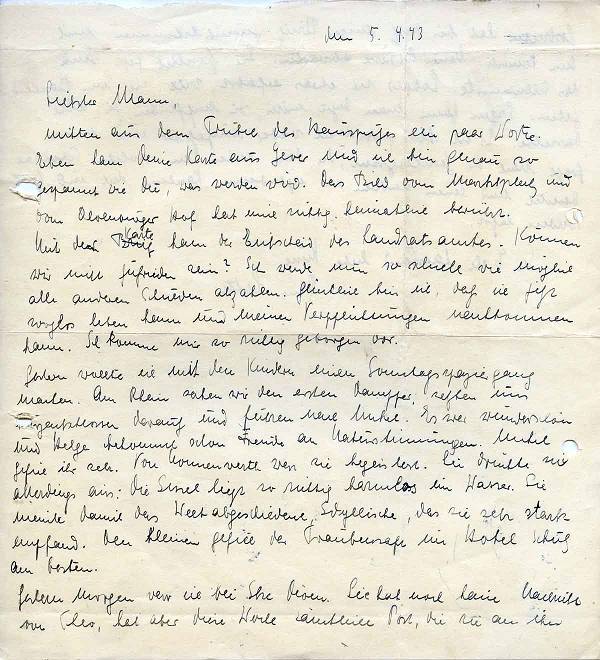 den 5. 4. 43
Liebster Mann,
mitten aus dem Trubel des Hausputzes ein paar Worte.
Eben kam Deine Karte aus Jever und ich bin genau so
gespannt wie Du, was werden wird. Das Bild vom Marktplatz und
vom Oldenburger Hof hat mich richtig heimatlich berührt.
Mit der Karte kam der Entscheid des Landratsamtes. Können
wir nicht zufrieden sein? Ich werde nun so schnell wie möglich
alle anderen Schulden abzahlen. Glücklich bin ich, daß ich jetzt
sorglos leben kann und meinen Verpflichtungen nachkommen
kann. Ich komme mir so richtig geborgen vor.
Gestern wollte ich mit den Kindern einen Sonntagsspaziergang
machen. Am Rhein sahen wir den ersten Dampfer, setzten uns
kurzentschlossen darauf und fuhren nach Unkel. Es war wunderschön
und Helge bekommt schon Freude an Naturstimmungen. Unkel
gefiel ihr sehr. Von Nonnenwerth war sie begeistert. Sie drückte sich
allerdings aus: die Insel liegt so richtig harmlos im Wasser. Sie
meinte damit das Weltabgeschiedene, Idyllische, das sie sehr stark
empfand. Den Kleinen gefiel der Traubensaft im Hotel Schulz
am besten.
Gestern Morgen war ich bei Ilse. Sie hat noch keine Nachricht
von Theo, hat aber diese Woche sämtliche Post, die sie an ihn